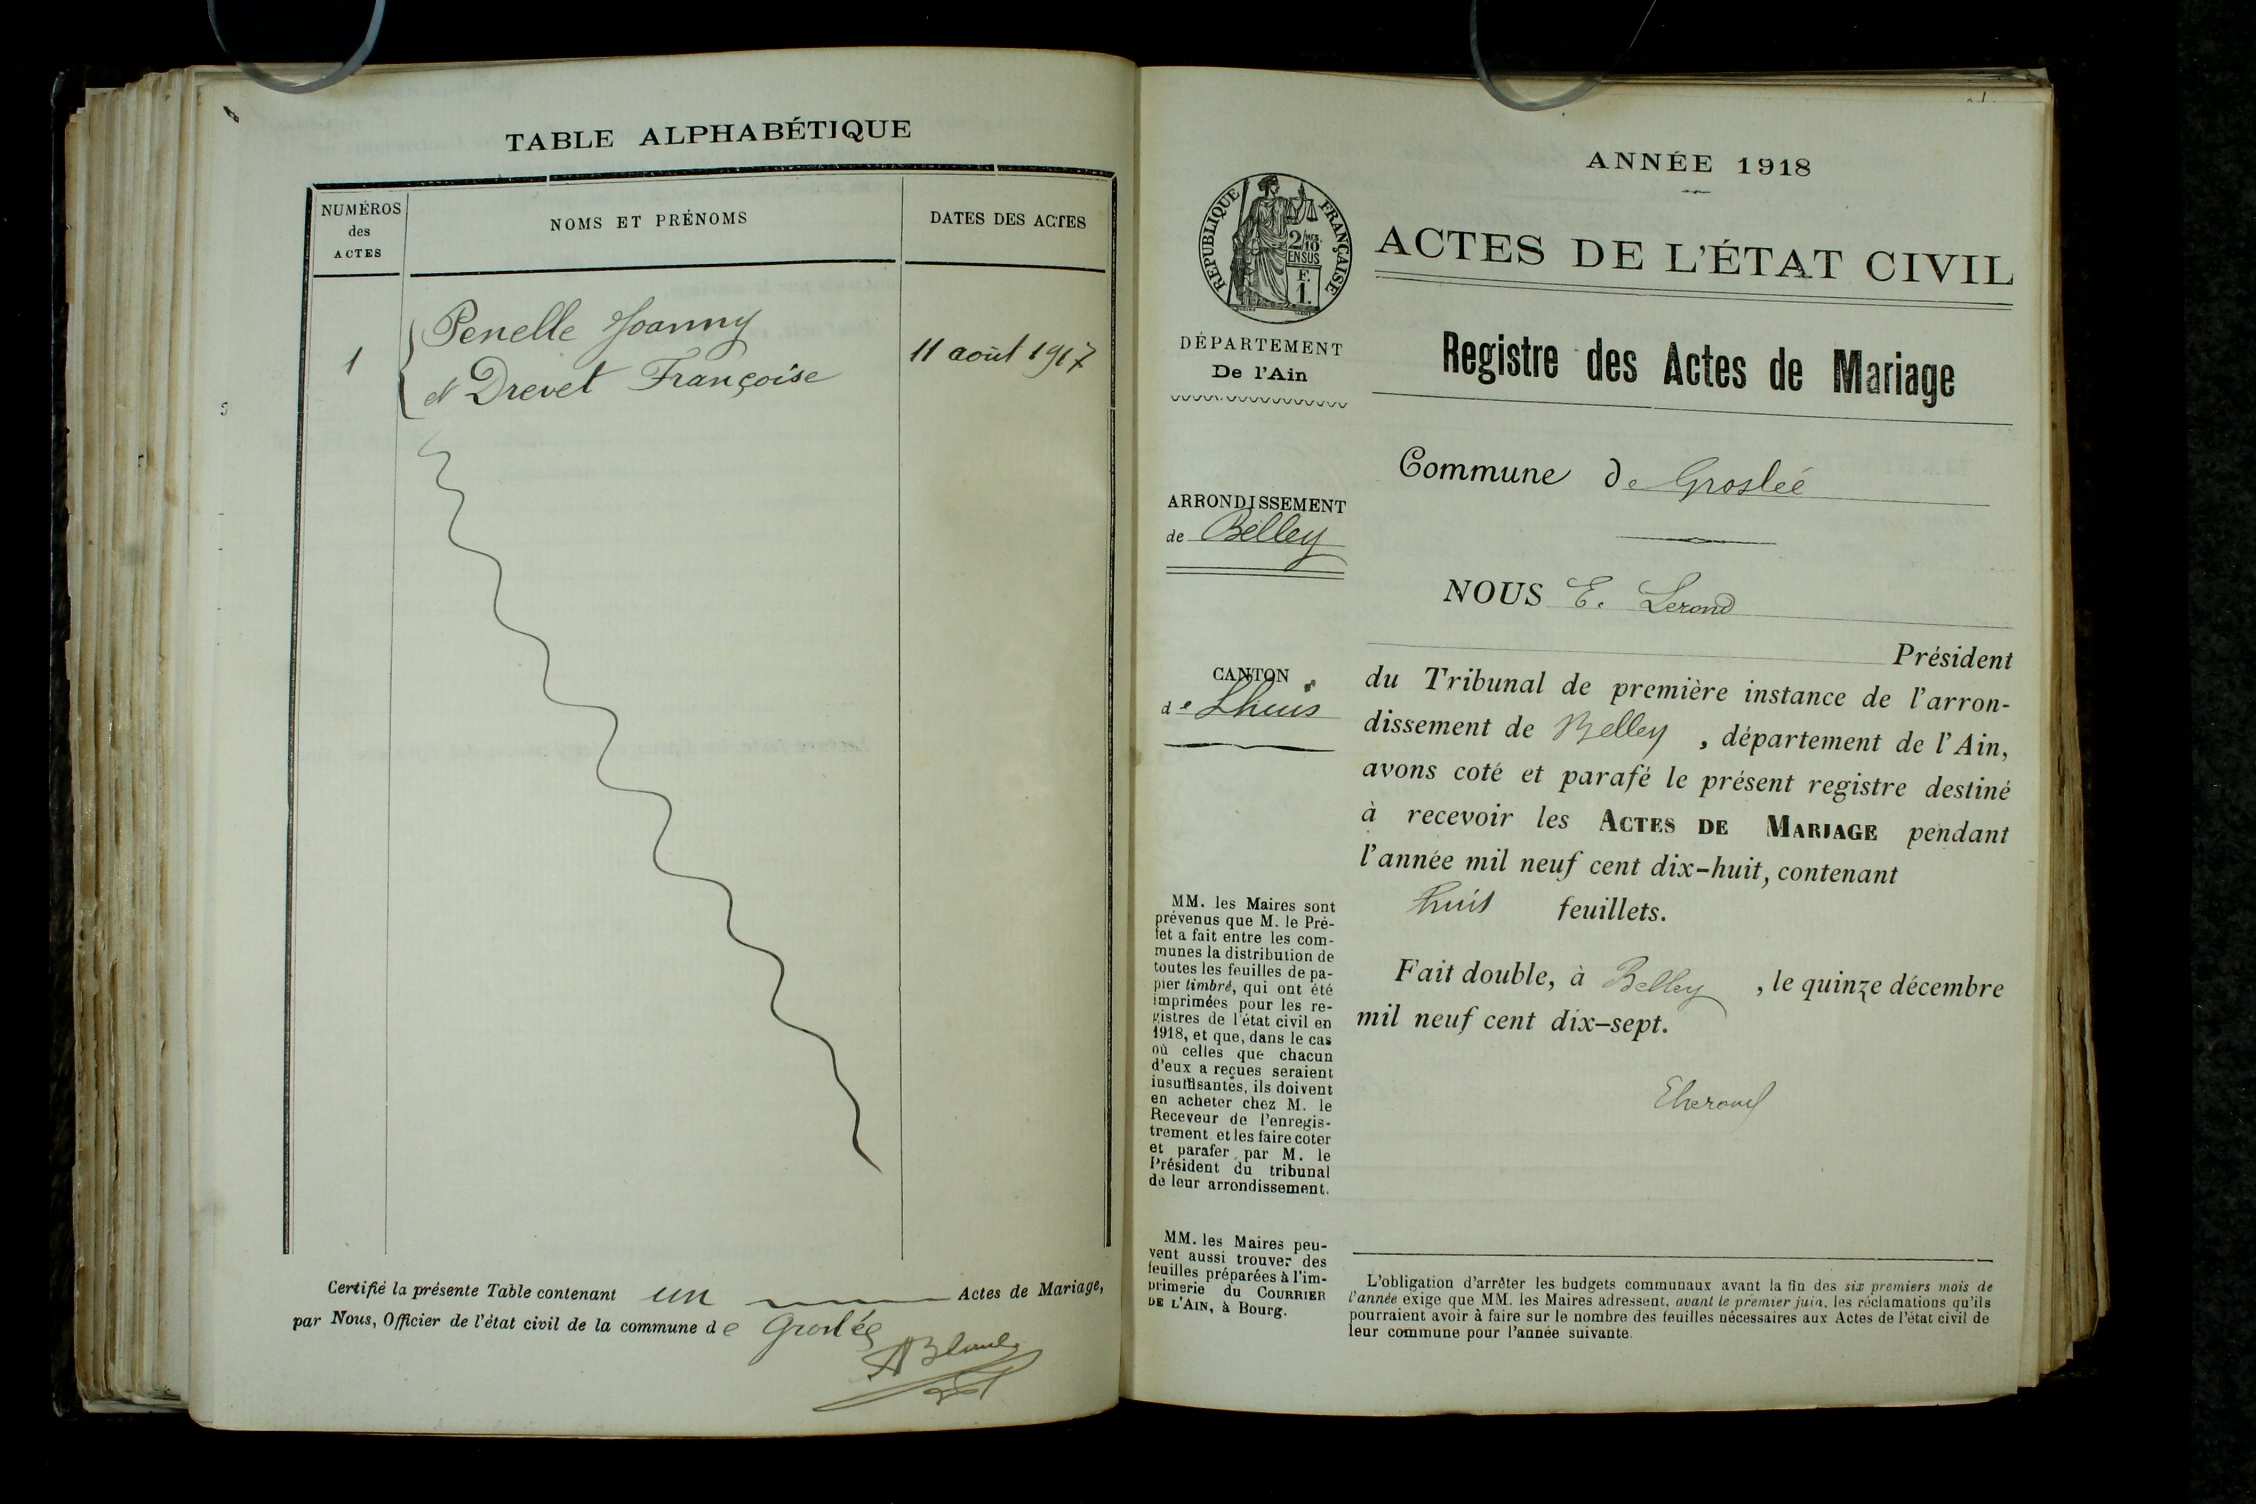 TABLE ALPHABÉTIQUE
NUMÉROS
des
ACTES
NOMS ET PRÉNOMS
DATES DES ACTES
Penelle Joanny
1
11 août 1917
et Drevet Françoise
Certifié la présente Table contenant un Actes de Mariage,
par Nous, Officier de l'état civil de la commune de Groslée
ANNÉE 1918
RÉPUBLIQUE FRANÇAISE
2/10
EN SUS
F.
1.
ACTES DE L'ÉTAT CIVIL
DÉPARTEMENT
De l'Ain
Registre des Actes de Mariage
Commune de Groslée
ARRONDISSEMENT
de Belley
NOUS E. Lerond
Président
CANTON
de Lhuis
du Tribunal de première instance de l'arron-
dissement de Belley, département de l'Ain,
avons coté et parafé le présent registre destiné
à recevoir les ACTES DE MARIAGE pendant
l'année mil neuf cent dix-huit, contenant
huit feuillets.
Fait double, à Belley, le quinze décembre
mil neuf cent dix-sept.
MM. les Maires sont
prévenus que M. le Pré-
fet a fait entre les com-
munes la distribution de
toutes les feuilles de pa-
pier timbré, qui ont été
imprimées pour les re-
gistres de l'état civil en
1918, et que, dans le cas
où celles que chacun
d'eux a reçues seraient
insuffisantes, ils doivent
en acheter chez M. le
Receveur de l'enregis-
trement et les faire coter
et parafer par M. le
Président du tribunal
de leur arrondissement.
MM. les Maires peu-
vent aussi trouver des
feuilles préparées à l'im-
primerie du COURRIER
DE L'AIN, à Bourg.
L'obligation d'arrêter les budgets communaux avant la fin des six premiers mois de
l'année exige que MM. les Maires adressent, avant le premier juin, les réclamations qu'ils
pourraient avoir à faire sur le nombre des feuilles nécessaires aux Actes de l'état civil de
leur commune pour l'année suivante.